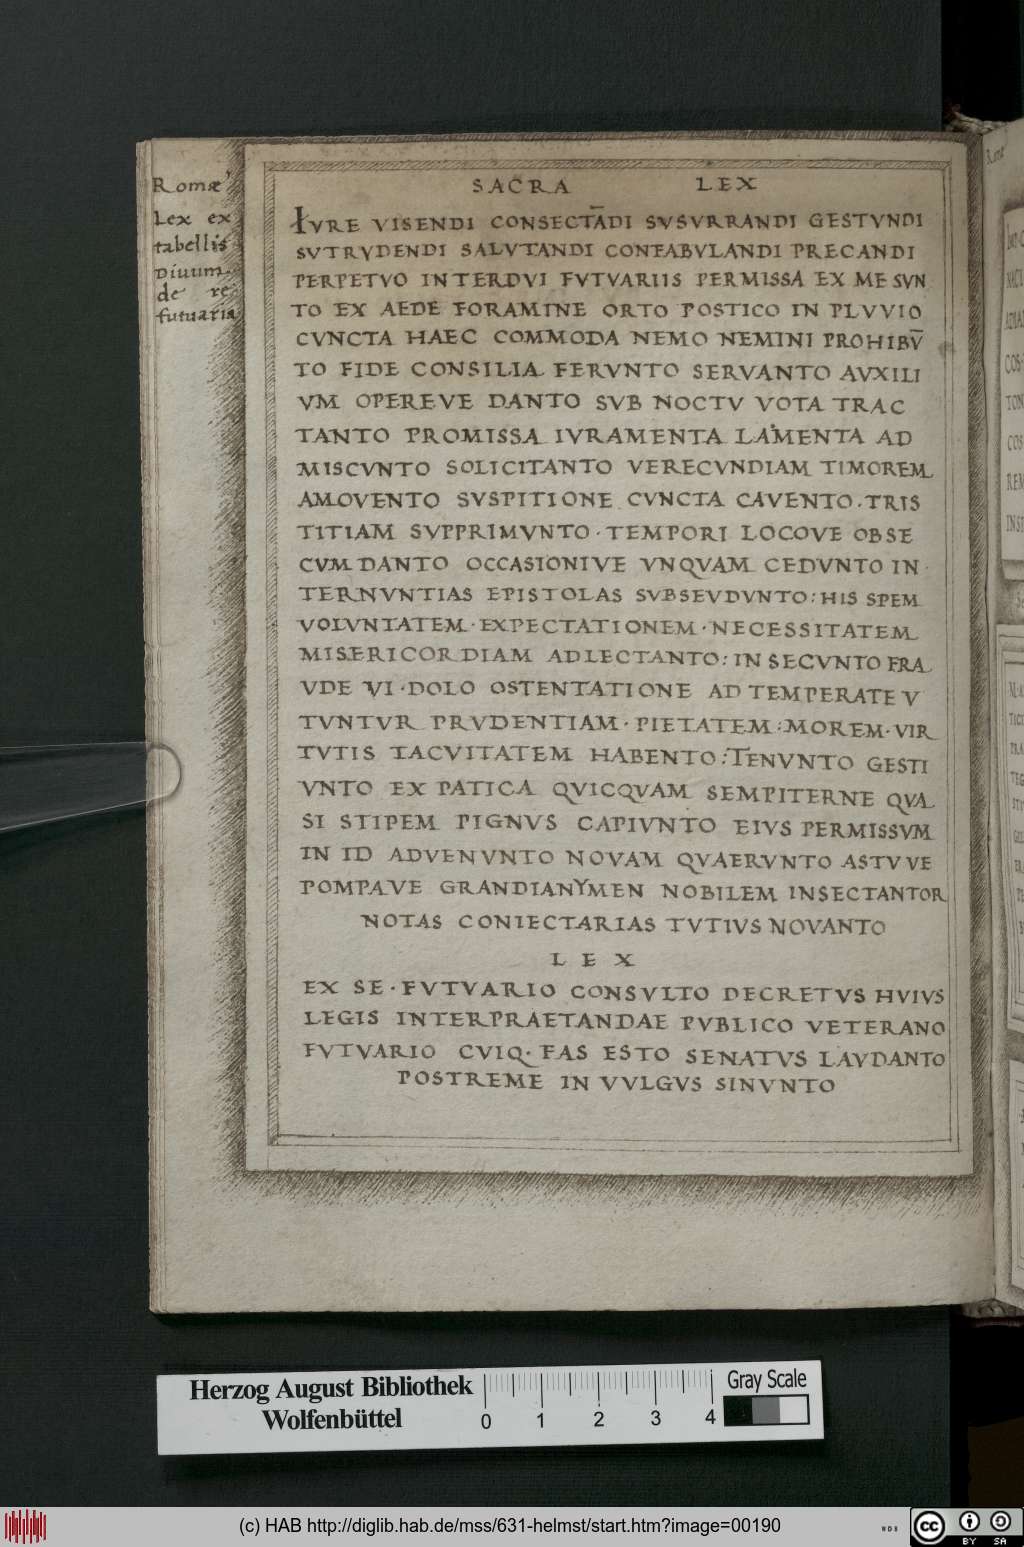 Romæ
Lex ex
tabellis
Diuum
de re
futuaria
SACRA LEX
IVRE VISENDI CONSECTĀDI SVSVRRANDI GESTVNDI
SVTRVDENDI SALVTANDI CONFABVLANDI PRECANDI
PERPETVO INTERDVI FVTVARIIS PERMISSA EX ME SVN
TO EX AEDE FORAMINE ORTO POSTICO IN PLVVIO
CVNCTA HAEC COMMODA NEMO NEMINI PROHIBV̄
TO FIDE CONSILIA FERVNTO SERVANTO AVXILI
VM OPEREVE DANTO SVB NOCTV VOTA TRAC
TANTO PROMISSA IVRAMENTA LAMENTA AD
MISCVNTO SOLICITANTO VERECVNDIAM TIMOREM
AMOVENTO SVSPITIONE CVNCTA CAVENTO · TRIS
TITIAM SVPPRIMVNTO · TEMPORI LOCOVE OBSE
CVM DANTO OCCASIONIVE VNQVAM CEDVNTO IN
TERNVNTIAS EPISTOLAS SVBSEVDVNTO : HIS SPEM
VOLVNTATEM · EXPECTATIONEM · NECESSITATEM
MISERICORDIAM ADLECTANTO : IN SECVNTO FRA
VDE VI · DOLO OSTENTATIONE AD TEMPERATE V
TVNTVR PRVDENTIAM · PIETATEM : MOREM · VIR
TVTIS TACVITATEM HABENTO : TENVNTO GESTI
VNTO EX PATICA QVICQVAM SEMPITERNE QVA
SI STIPEM PIGNVS CAPIVNTO EIVS PERMISSVM
IN ID ADVENVNTO NOVAM QVAERVNTO ASTVVE
POMPAVE GRANDIANYMEN NOBILEM INSECTANTOR
NOTAS CONIECTARIAS TVTIVS NOVANTO
LEX
EX SE · FVTVARIO CONSVLTO DECRETVS HVIVS
LEGIS INTERPRAETANDAE PVBLICO VETERANO
FVTVARIO CVIQ · FAS ESTO SENATVS LAVDANTO
POSTREME IN VVLGVS SINVNTO
Herzog August Bibliothek
Wolfenbüttel
0 1 2 3 4
Gray Scale
(c) HAB http://diglib.hab.de/mss/631-helmst/start.htm?image=00190
WDB
cc
BY SA